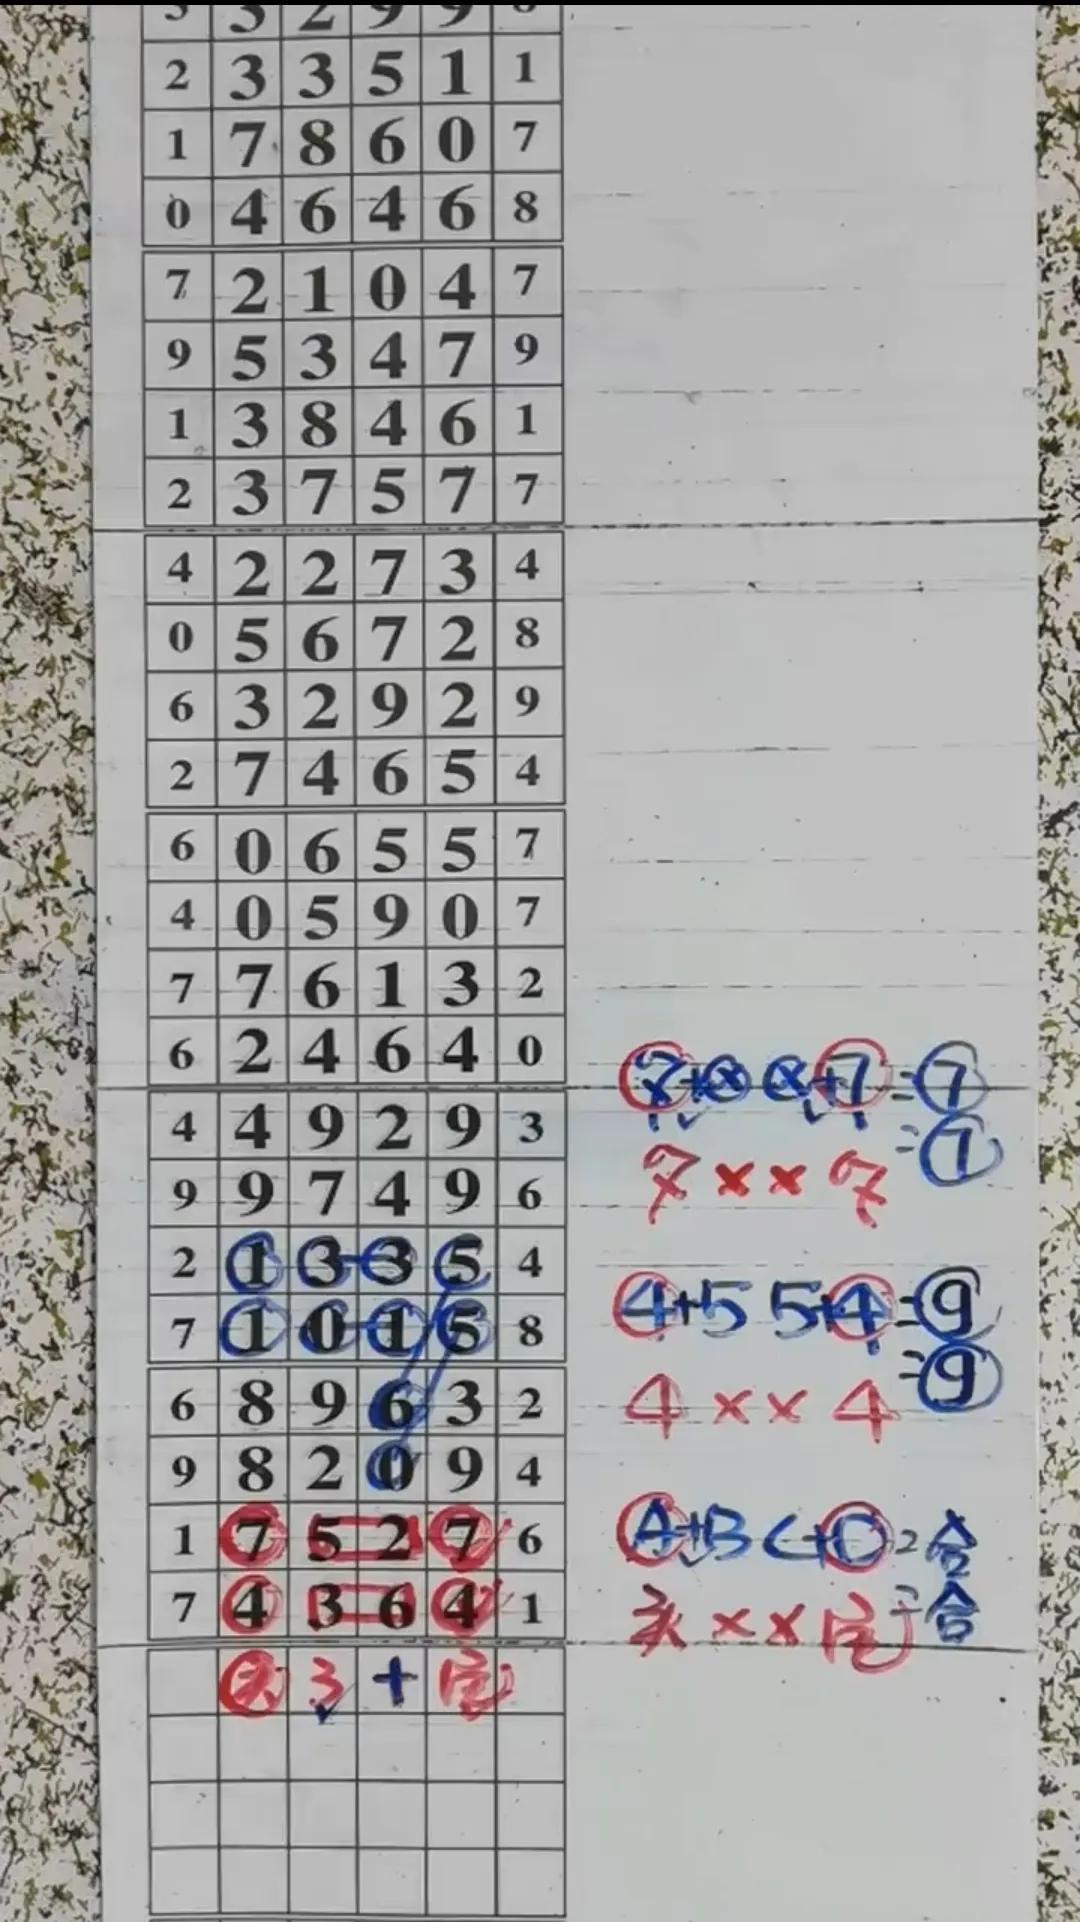 3 2 9 9
2 3 3 5 1 1
1 7 8 6 0 7
0 4 6 4 6 8
7 2 1 0 4 7
9 5 3 4 7 9
1 3 8 4 6 1
2 3 7 5 7 7
4 2 2 7 3 4
0 5 6 7 2 8
6 3 2 9 2 9
2 7 4 6 5 4
6 0 6 5 5 7
4 0 5 9 0 7
7 7 6 1 3 2
6 2 4 6 4 0
4 4 9 2 9 3
9 9 7 4 9 6
2 1 3 3 5 4
7 1 0 1 5 8
6 8 9 6 3 2
9 8 2 0 9 4
1 7 5 2 7 6
7 4 3 6 4 1
3 +
=7
=7
7 × × 7
4+5 5+4=9
=9
4 × × 4
A+B C+D=合
头 × ×
=合